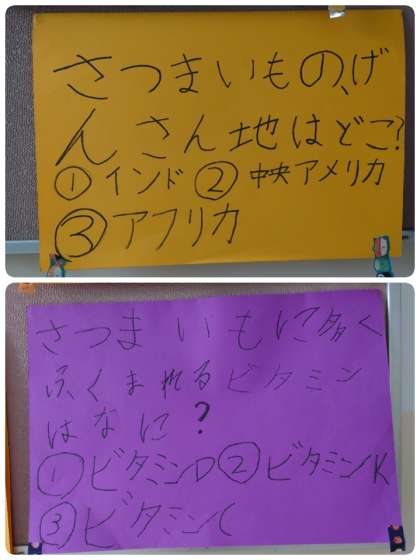 さつまいもの、げ
んさん地はどこ?
①インド②中央アメリカ
③アフリカ
さつまいもに多く
ふくまれるビタミン
はなに?
①ビタミンD②ビタミンK
③ビタミンC